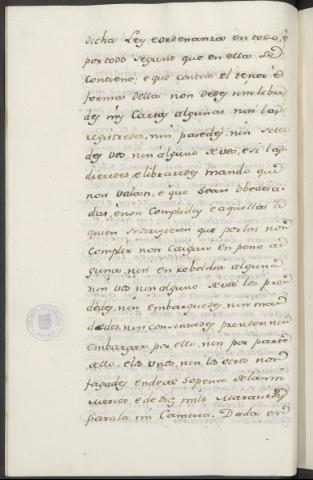 dicha Ley e ordenanza en todo, e
por todo segund que en ella se
contiene; e que contra el tenor e
forma della non dedes nin libre
des mis Cartas algunas nin las
registredes, nin pasedes, nin selle
des vos nin alguno de vos, e si las
dieredes, e libraredes mando que
non valan, e que sean obedeci
das, e non complidas e aquellas a
quien se dirigieren que por las non
complir non caigan en pena al
guna, nin en rebeldia alguna
nin vos nin alguno de vos los pren
dedes, nin embarguedes, nin man
dedes, nin consintades prender nin
embargar por ello, nin por parte
dello, e los unos, nin los otros non
fagades ende al so pena de la mi
merced, e de diez mil maravedis
para la mi Camara. Dada en